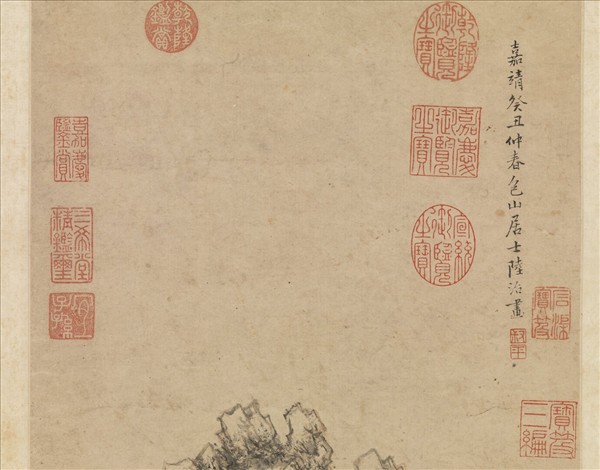 嘉靖癸丑仲春包山居士陸治畫
叔平
石渠寶笈
寶笈三編
乾隆御覽之寶
嘉慶御覽之寶
宣統御覽之寶
乾隆鑑賞
嘉慶鑒賞
三希堂精鑑璽
宜子孫